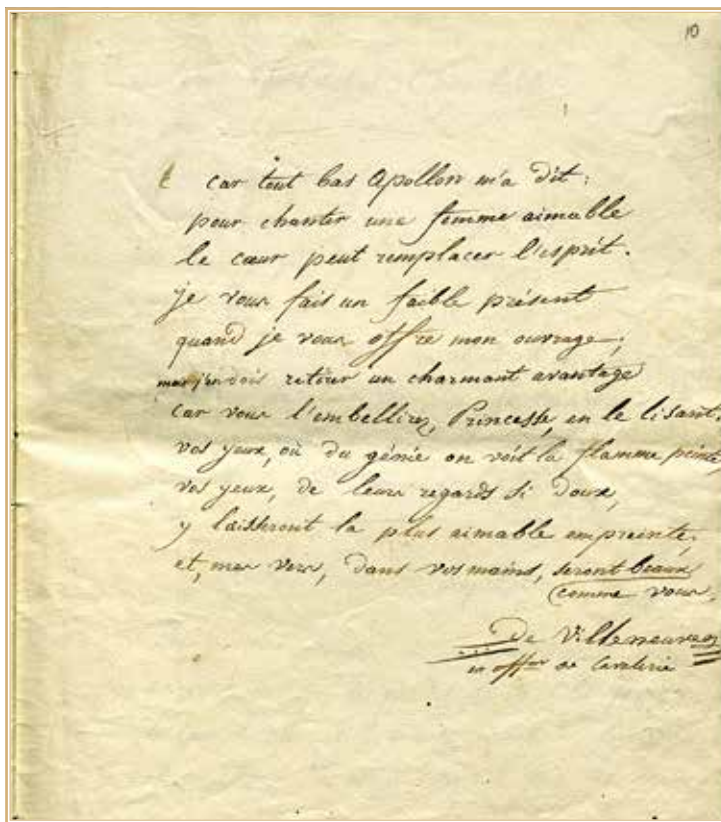 10
car tout bas Apollon m'a dit:
pour chanter une femme aimable
le cœur peut remplacer l'esprit.
je vous fais un faible présent
quand je vous offre mon ouvrage;
mais j'en dois retirer un charmant avantage
car vous l'embellirez, Princesse, en le lisant.
vos yeux, où du génie on voit la flamme peinte,
vos yeux, de leurs regards si doux,
y laisseront la plus aimable empreinte;
et, mes vers, dans vos mains, seront beaux
comme vous.
de Villeneuve
offer de Cavalerie